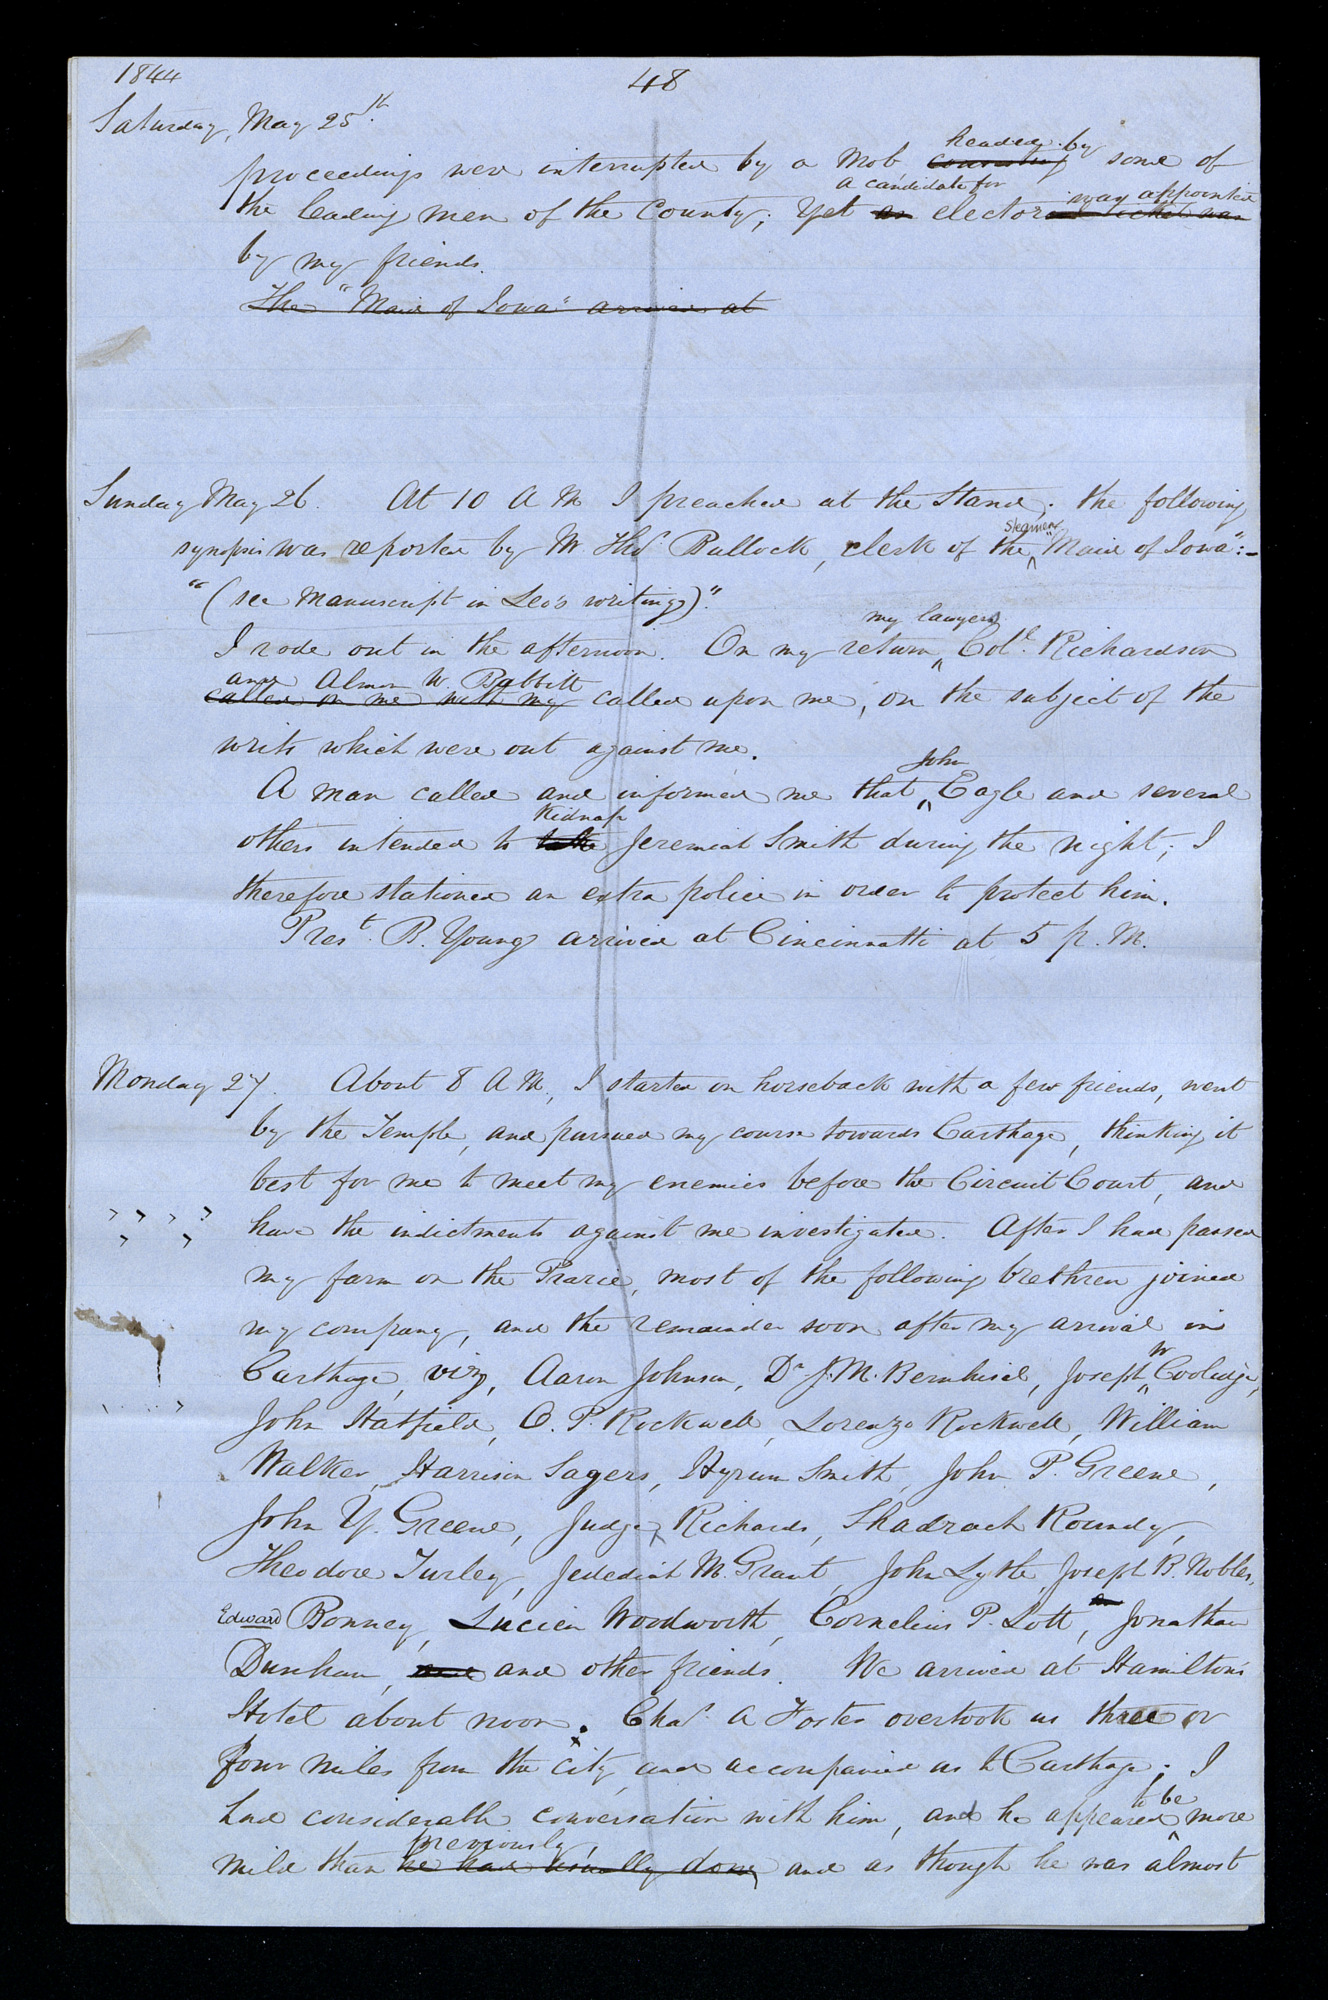 1844
48
Saturday, May 25th.
headed by
proceedings were interrupted by a Mob consisting some of
a candidate for was appointed
the leading men of the County; Yet an elector
by my friends.
The "Maid of Iowa" arrived at
Sunday May 26. At 10 A M I preached at the Stand. the following
steamer
synopsis was reported by Mr Thos Bullock, clerk of the "Maid of Iowa":-
"(see manuscript in Leo's writings)."
my lawyers
I rode out in the afternoon. On my return Col. Richardson
and Almon W. Babbitt
called on me with my called upon me, on the subject of the
writs which were out against me.
John
A man called and informed me that Eagle and several
Kidnap
others intended to take Jeremiah Smith during the night; I
therefore stationed an extra police in order to protect him.
Prest. B. Young arrived at Cincinnatti at 5 p. M.
Monday 27. About 8 A M, I started on horseback with a few friends, went
by the Temple, and pursued my course towards Carthage, thinking it
best for me to meet my enemies before the Circuit Court, and
have the indictments against me investigated. After I had passed
my farm on the Prarie, most of the following brethren joined
my company, and the remainder soon after my arrival in
W
Carthage, viz, Aaron Johnson, Dr J. M. Bernhisel, Joseph Coolidge,
John Hatfield, O. P. Rockwell, Lorenzo Rockwell, William
Walker, Harrison Sagers, Hyrum Smith, John P. Greene,
John Y. Greene, Judge Richards, Shadrach Roundy,
Theodore Turley, Jedediah M. Grant, John Lytle, Joseph B. Nobles,
Edward Bonney, Lucien Woodworth, Cornelius P. Lott, Jonathan
Dunham, and and other friends. We arrived at Hamilton's
Hotel about noon. Chas. A Foster overtook us three or
four miles from the city, and accompanied us to Carthage; I
to be
had considerable conversation with him, and he appeared more
previously,
mild than he had usually done, and as though he was almost